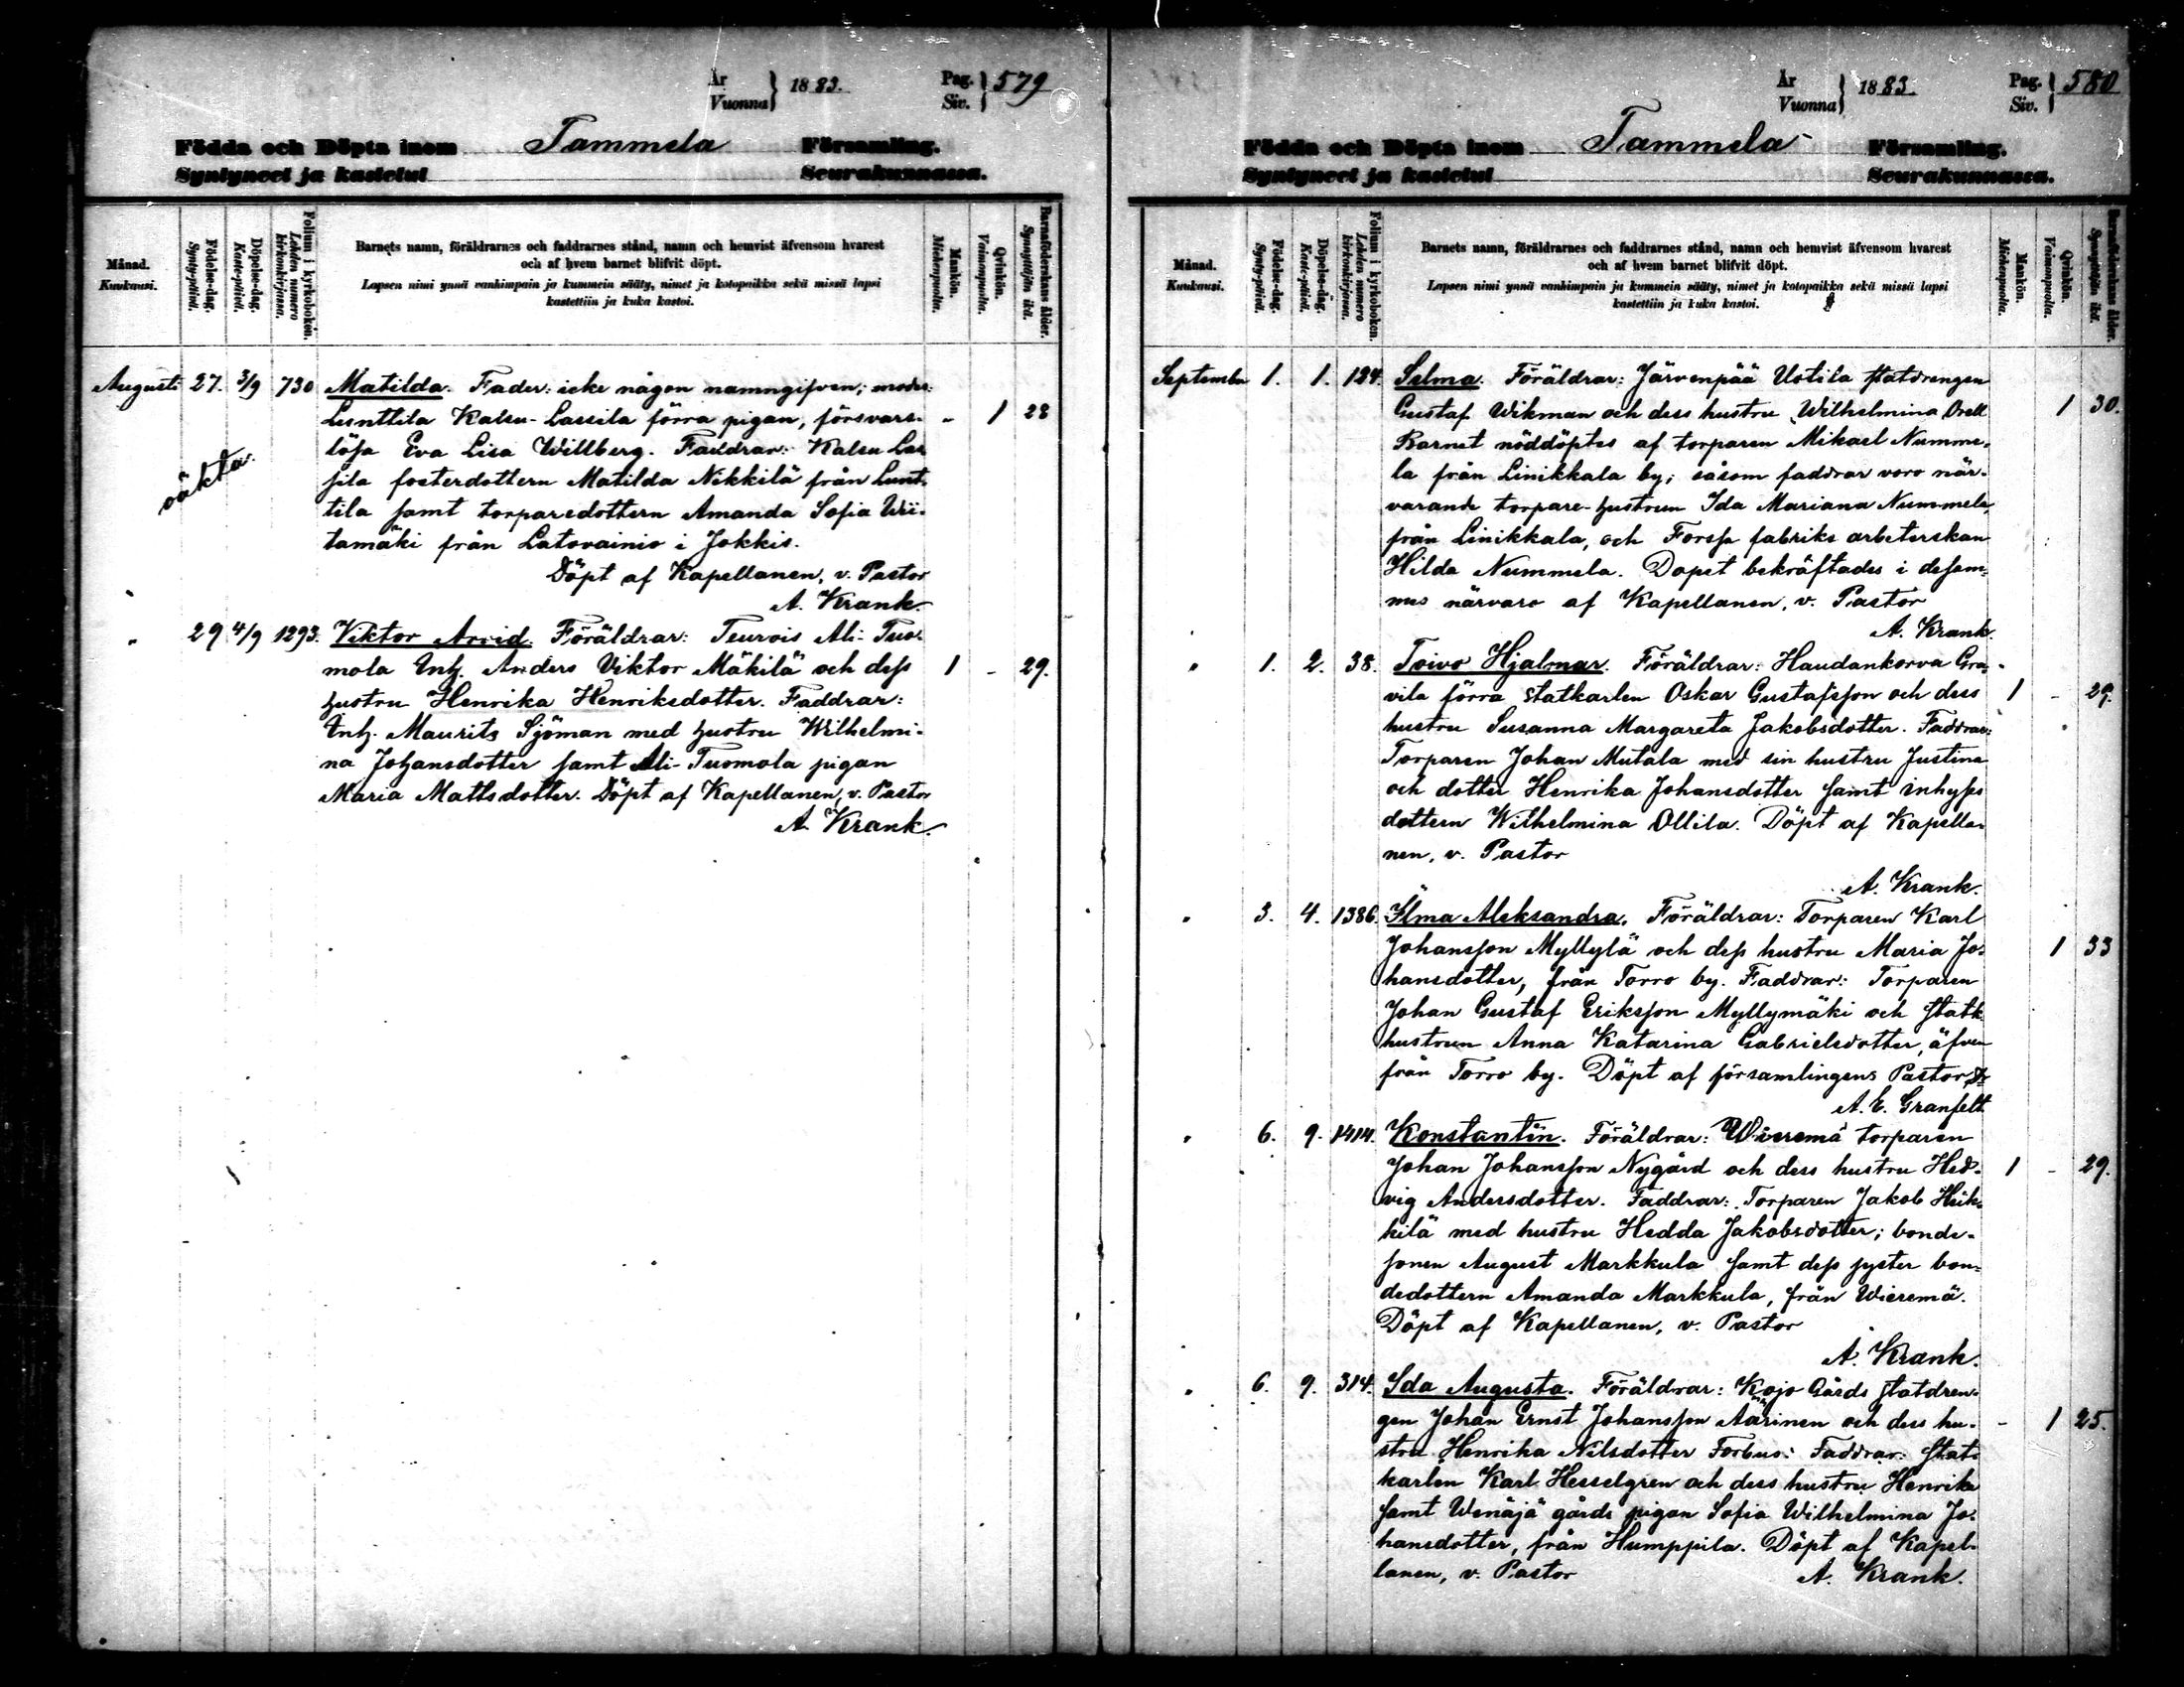 År
Vuonna } 1883.
Pag.
Siv. } 579
Födda och Döpta inom Tammela Församling.
Syntyneet ja kastetut Seurakunnassa.
Månad.
Kuukausi.
Födelse-dag.
Synty-päivä.
Döpelse-dag.
Kaste-päivä.
Folium i kyrkoboken.
Lehden numero kirkonkirjassa.
Barnets namn, föräldrarnes och faddrarnes stånd, namn och hemvist äfvensom hvarest
och af hvem barnet blifvit döpt.
Lapsen nimi ynnä vanhimpain ja kummein sääty, nimet ja kotopaikka sekä missä lapsi
kastettiin ja kuka kastoi.
Mankön.
Miehenpuolta.
Qvinkön.
Vaimonpuolta.
Barnaföderskans ålder.
Synnyttäjän ikä.
Augusti 27. 3/9 730 Matilda. Fader: icke någon namngifven; moder:
Lunttila Kalsu-Lassila förra pigan, försvars- " 1 28
lösa Eva Lisa Willberg. Faddrar: Kalsu Las
sila fosterdottern Matilda Nikkilä från Lunt-
oäkta.
tila samt torparedottern Amanda Sofia Wii-
tamäki från Latovainio i Jokkis.
Döpt af Kapellanen, v. Pastor
A. Krank.
" 29 4/9 1293. Viktor Arvid. Föräldrar: Teurois Ali-Tuo-
mola Inh. Anders Viktor Mäkilä och dess 1 - 29.
hustru Henrika Henriksdotter. Faddrar:
Inh. Maurits Sjöman med hustru Wilhelmi-
na Johansdotter samt Ali-Tuomola pigan
Maria Mattsdotter. Döpt af Kapellanen, v. Pastor
A. Krank.
År
Vuonna } 1883.
Pag.
Siv. } 580
Födda och Döpta inom Tammela Församling.
Syntyneet ja kastetut Seurakunnassa.
Månad.
Kuukausi.
Födelse-dag.
Synty-päivä.
Döpelse-dag.
Kaste-päivä.
Folium i kyrkoboken.
Lehden numero kirkonkirjassa.
Barnets namn, föräldrarnes och faddrarnes stånd, namn och hemvist äfvensom hvarest
och af hvem barnet blifvit döpt.
Lapsen nimi ynnä vanhimpain ja kummein sääty, nimet ja kotopaikka sekä missä lapsi
kastettiin ja kuka kastoi.
Mankön.
Miehenpuolta.
Qvinkön.
Vaimonpuolta.
Barnaföderskans ålder.
Synnyttäjän ikä.
September 1. 1. 124. Selma. Föräldrar: Järvenpää Uotila statdrengen
Gustaf Wikman och dess hustru Wilhelmina Orell 1 30.
Barnet nöddöptes af torparen Mikael Numme-
la från Linikkala by; såsom faddrar voro när-
varande torpare-hustrun Ida Mariana Nummela,
från Linikkala, och Forssa fabriks arbeterskan
Hilda Nummela. Dopet bekräftades i desam-
mes närvaro af Kapellanen, v. Pastor
A. Krank.
" 1. 2. 38. Toivo Hjalmar. Föräldrar: Haudankorva Gra-
vila förra statkarlen Oskar Gustafsson och dess 1 - 29.
hustru Susanna Margareta Jakobsdotter. Faddrar:
Torparen Johan Mutala med sin hustru Justina
och dotter Henrika Johansdotter samt inhyses
dottern Wilhelmina Ollila. Döpt af Kapella-
nen, v. Pastor
A. Krank.
" 3. 4. 1386. Ilma Aleksandra. Föräldrar: Torparen Karl
Johansson Myllylä och dess hustru Maria Jo- 1 33
hansdotter, från Torro by. Faddrar: Torparen
Johan Gustaf Eriksson Myllymäki och statk.
hustrun Anna Katarina Gabrielsdotter, äfven
från Torro by. Döpt af församlingens Pastor, Dr
A. E. Granfelt
" 6. 9. 1414. Konstantin. Föräldrar: Wieremä torparen
Johan Johansson Nygård och dess hustru Hed- 1 - 29.
vig Andersdotter. Faddrar: Torparen Jakob Heik-
kilä med hustru Hedda Jakobsdotter; bonde-
sonen August Markkula samt dess syster bon-
dedottern Amanda Markkula, från Wieremä.
Döpt af Kapellanen, v. Pastor
A. Krank.
" 6. 9. 314. Ida Augusta. Föräldrar: Kojo Gårds statdren-
gen Johan Ernst Johansson Äärinen och dess hu- - 1 25.
stru Henrika Nilsdotter Forbus. Faddrar: Stat-
karlen Karl Hesselgren och dess hustru Henrika
samt Wenäjä gårds pigan Sofia Wilhelmina Jo-
hansdotter, från Humppila. Döpt af Kapel-
lanen, v. Pastor A. Krank.